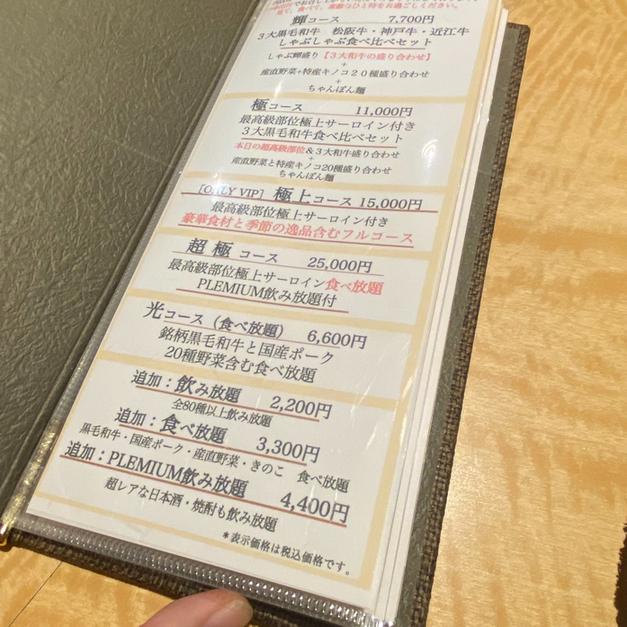 見て、食べて、素敵なひと時をお過ごしください。
輝コース 7,700円
3大黒毛和牛 松阪牛・神戸牛・近江牛
しゃぶしゃぶ食べ比べセット
しゃぶ輝盛り【3大和牛の盛り合わせ】
+
産直野菜+特産キノコ20種盛り合わせ
+
ちゃんぽん麺
極コース 11,000円
最高級部位極上サーロイン付き
3大黒毛和牛食べ比べセット
本日の超高級部位&3大和牛盛り合わせ
+
産直野菜と特産キノコ20種盛り合わせ
ちゃんぽん麺
[ONLY VIP] 極上コース 15,000円
最高級部位極上サーロイン付き
豪華食材と季節の逸品含むフルコース
超極コース 25,000円
最高級部位極上サーロイン食べ放題
PLEMIUM飲み放題付
光コース(食べ放題) 6,600円
銘柄黒毛和牛と国産ポーク
20種野菜含む食べ放題
追加:飲み放題 2,200円
全80種以上飲み放題
追加:食べ放題 3,300円
黒毛和牛・国産ポーク・産直野菜・きのこ 食べ放題
追加:PLEMIUM飲み放題 4,400円
超レアな日本酒・焼酎も飲み放題
*表示価格は税込価格です。